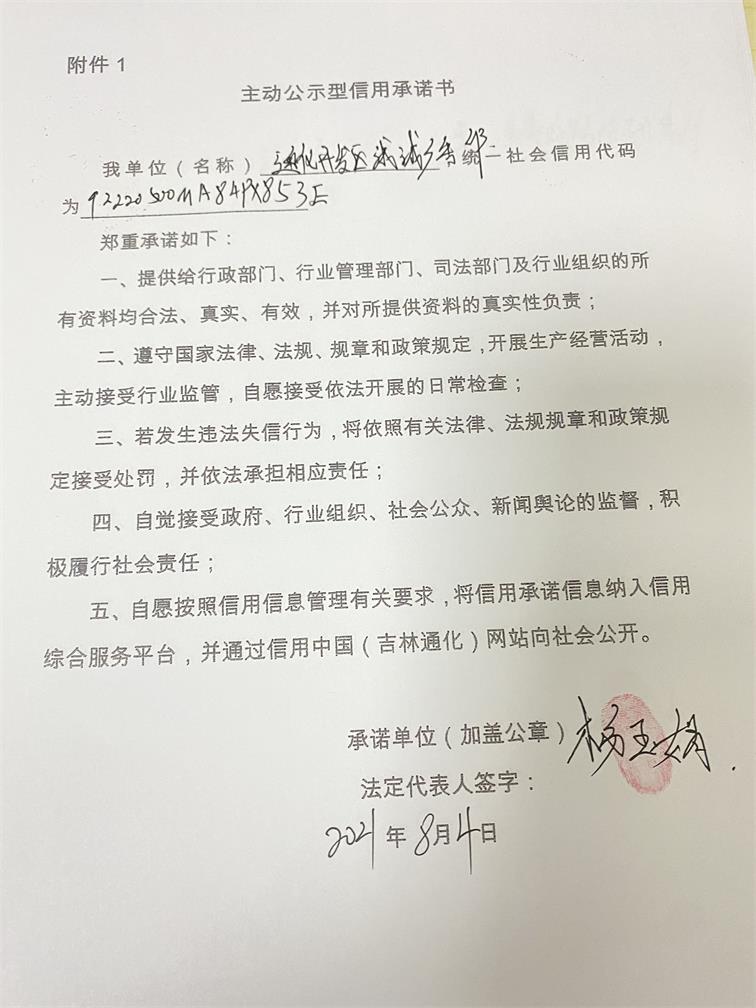 附件 1
主动公示型信用承诺书
我单位（名称）通化开发区诚诚广告部统一社会信用代码
为92220500MA84PX853E
郑重承诺如下：
一、提供给行政部门、行业管理部门、司法部门及行业组织的所
有资料均合法、真实、有效，并对所提供资料的真实性负责；
二、遵守国家法律、法规、规章和政策规定，开展生产经营活动，
主动接受行业监管，自愿接受依法开展的日常检查；
三、若发生违法失信行为，将依照有关法律、法规规章和政策规
定接受处罚，并依法承担相应责任；
四、自觉接受政府、行业组织、社会公众、新闻舆论的监督，积
极履行社会责任；
五、自愿按照信用信息管理有关要求，将信用承诺信息纳入信用
综合服务平台，并通过信用中国（吉林通化）网站向社会公开。
承诺单位（加盖公章）杨玉娟
法定代表人签字：
2021年8月4日